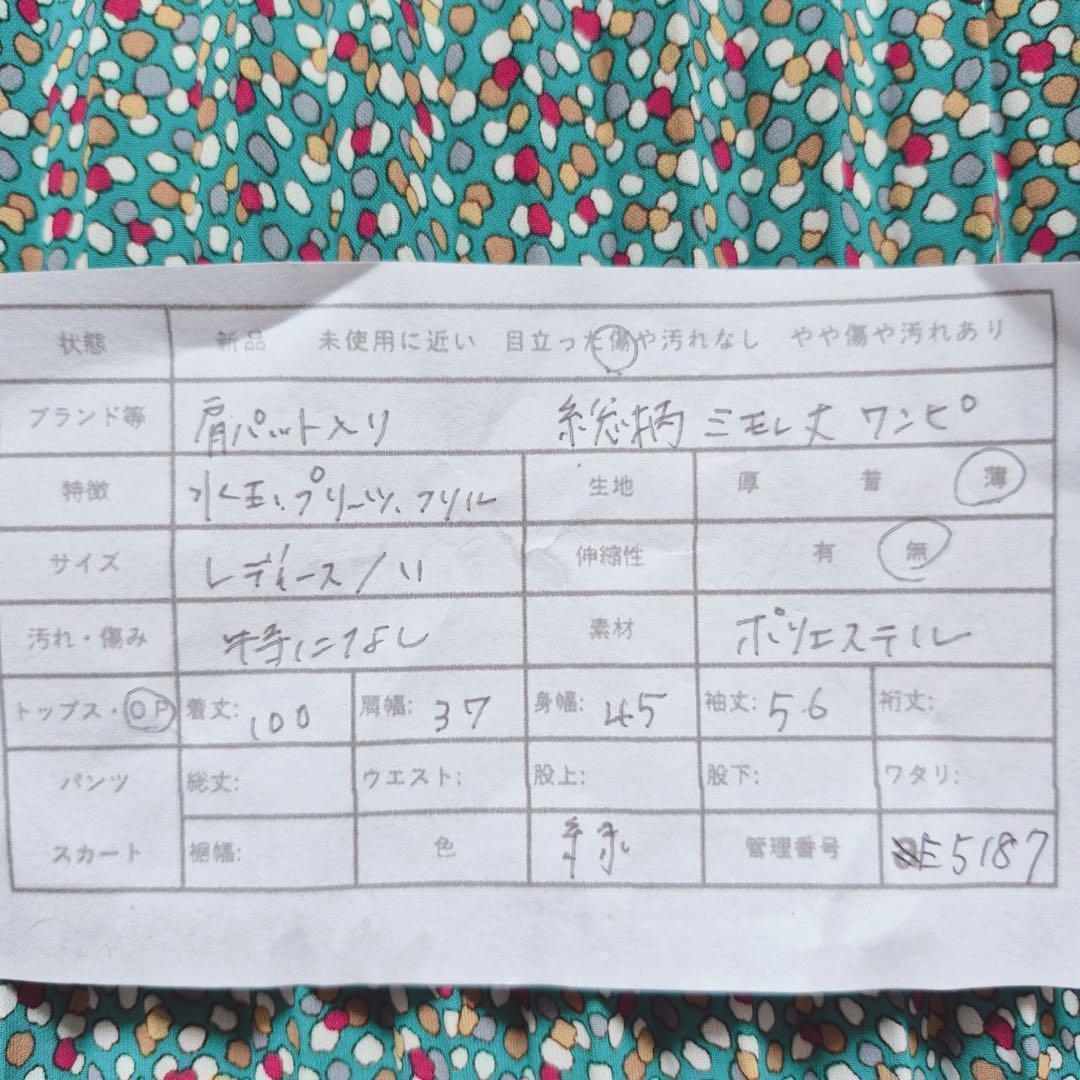 状態 新品 未使用に近い 目立った傷や汚れなし やや傷や汚れあり
ブランド等 肩パット入り 総柄 ミモレ丈 ワンピ
特徴 水玉、プリーツ、フリル 生地 厚 普 薄
サイズ レディース/11 伸縮性 有 無
汚れ・傷み 特になし 素材 ポリエステル
トップス・OP 着丈: 100 肩幅: 37 身幅: 45 袖丈: 56 裄丈:
パンツ 総丈: ウエスト: 股上: 股下: ワタリ:
スカート 裾幅: 色 緑 管理番号 E5187